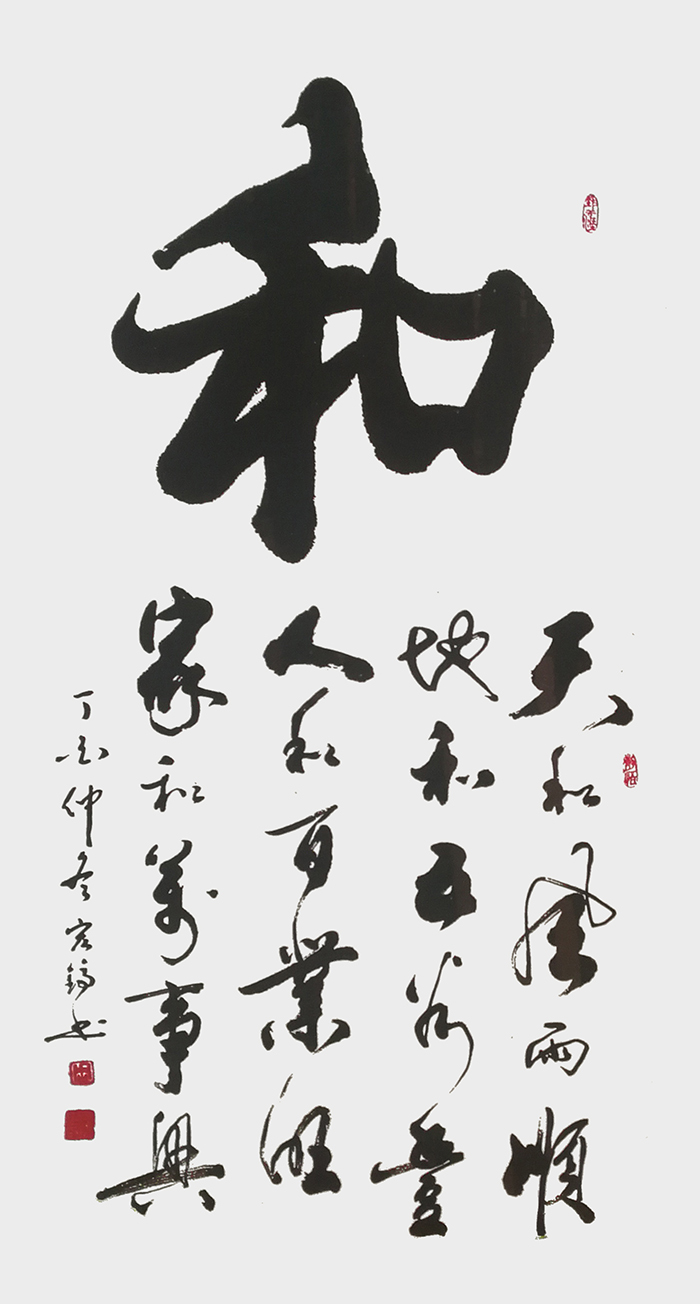 和
天和風雨順
地和五谷豐
人和百業旺
家和萬事興
丁酉仲冬宏鎬书